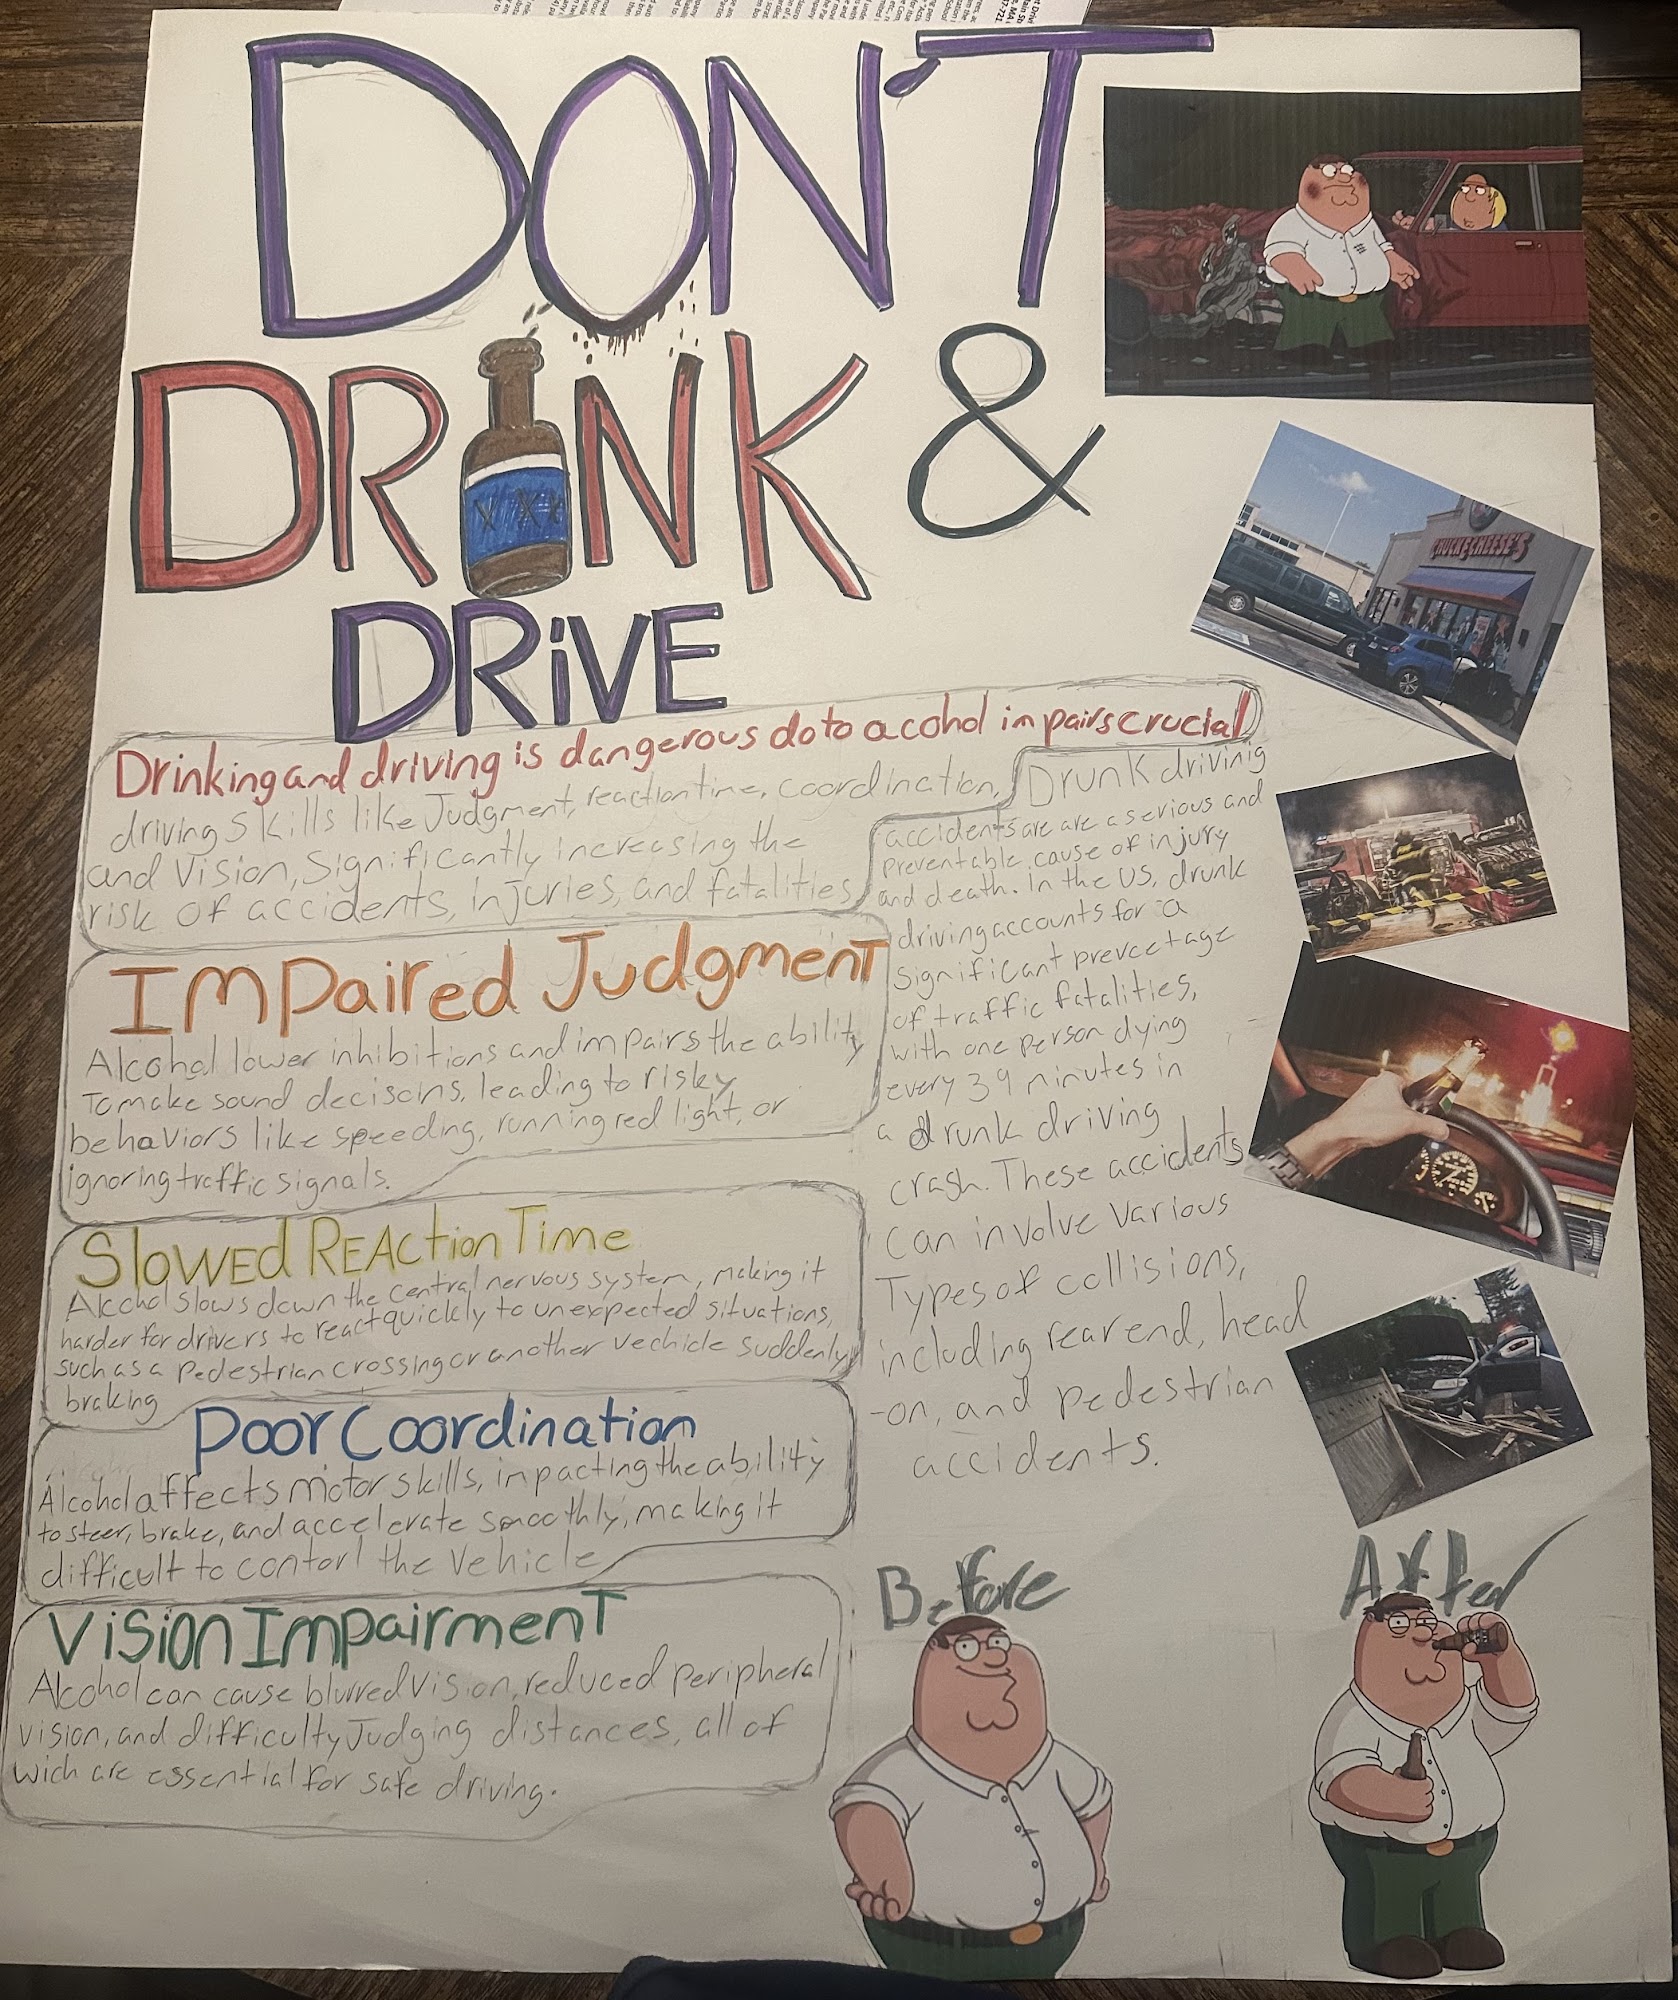 DON'T
DRINK &
DRiVE
Drinking and driving is dangerous do to acohol impairs crucial
driving skills like Judgment, reaction time, coordination,
and Vision, Significantly increasing the
risk of accidents, injuries, and fatalities
Impaired Judgment
Alcohol lower inhibitions and impairs the ability
To make sound decisoins, leading to risky
behaviors like speeding, running red light, or
ignoring traffic signals.
Slowed Reaction Time
Alcohol slows down the central nervous system, making it
harder for drivers to react quickly to unexpected situations,
such as a pedestrian crossing or another vechicle suddenly
braking
Poor Coordination
Alcohol affects motor skills, inpacting the ability
to steer, brake, and accelerate smoothly, making it
difficult to contorl the vehicle
Vision Impairment
Alcohol can cause blurred Vision, reduced peripheral
vision, and difficulty Judging distances, all of
wich are essential for safe driving.
Drunk drivinig
accidents are are a serious and
preventable cause of injury
and death. in the US, drunk
driving accounts for a
significant prevcetage
of traffic fatalities,
with one person dying
every 39 minutes in
a drunk driving
crash. These accidents
can involve various
Types of collisions,
including rear end, head
-on, and pedestrian
accidents.
CHUCK E CHEESE'S
Before
After